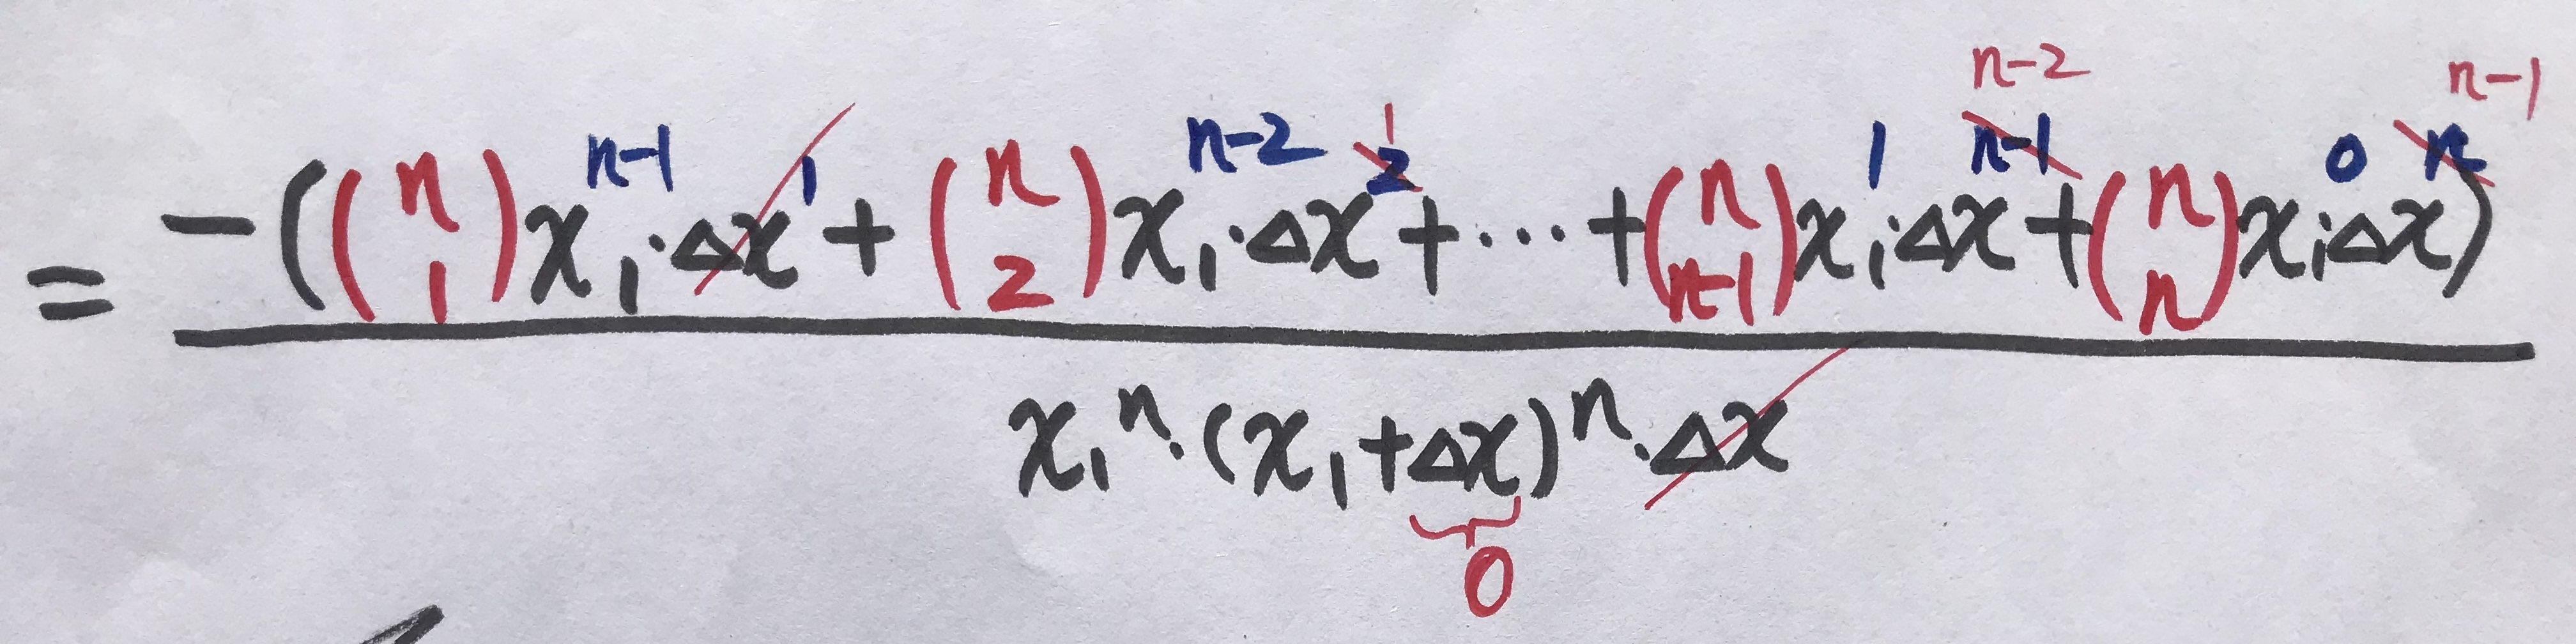 = \frac{-\left(\binom{n}{1} x_1^{n-1} \cdot \cancel{\Delta x^1} + \binom{n}{2} x_1^{n-2} \cdot \Delta x^{\cancel{2} 1} + \cdots + \binom{n}{n-1} x_1^1 \cdot \Delta x^{\cancel{n-1} n-2} + \binom{n}{n} x_1^0 \cdot \Delta x^{\cancel{n} n-1}\right)}{x_1^n \cdot (x_1 + \underbrace{\Delta x}_{0})^n \cdot \cancel{\Delta x}}